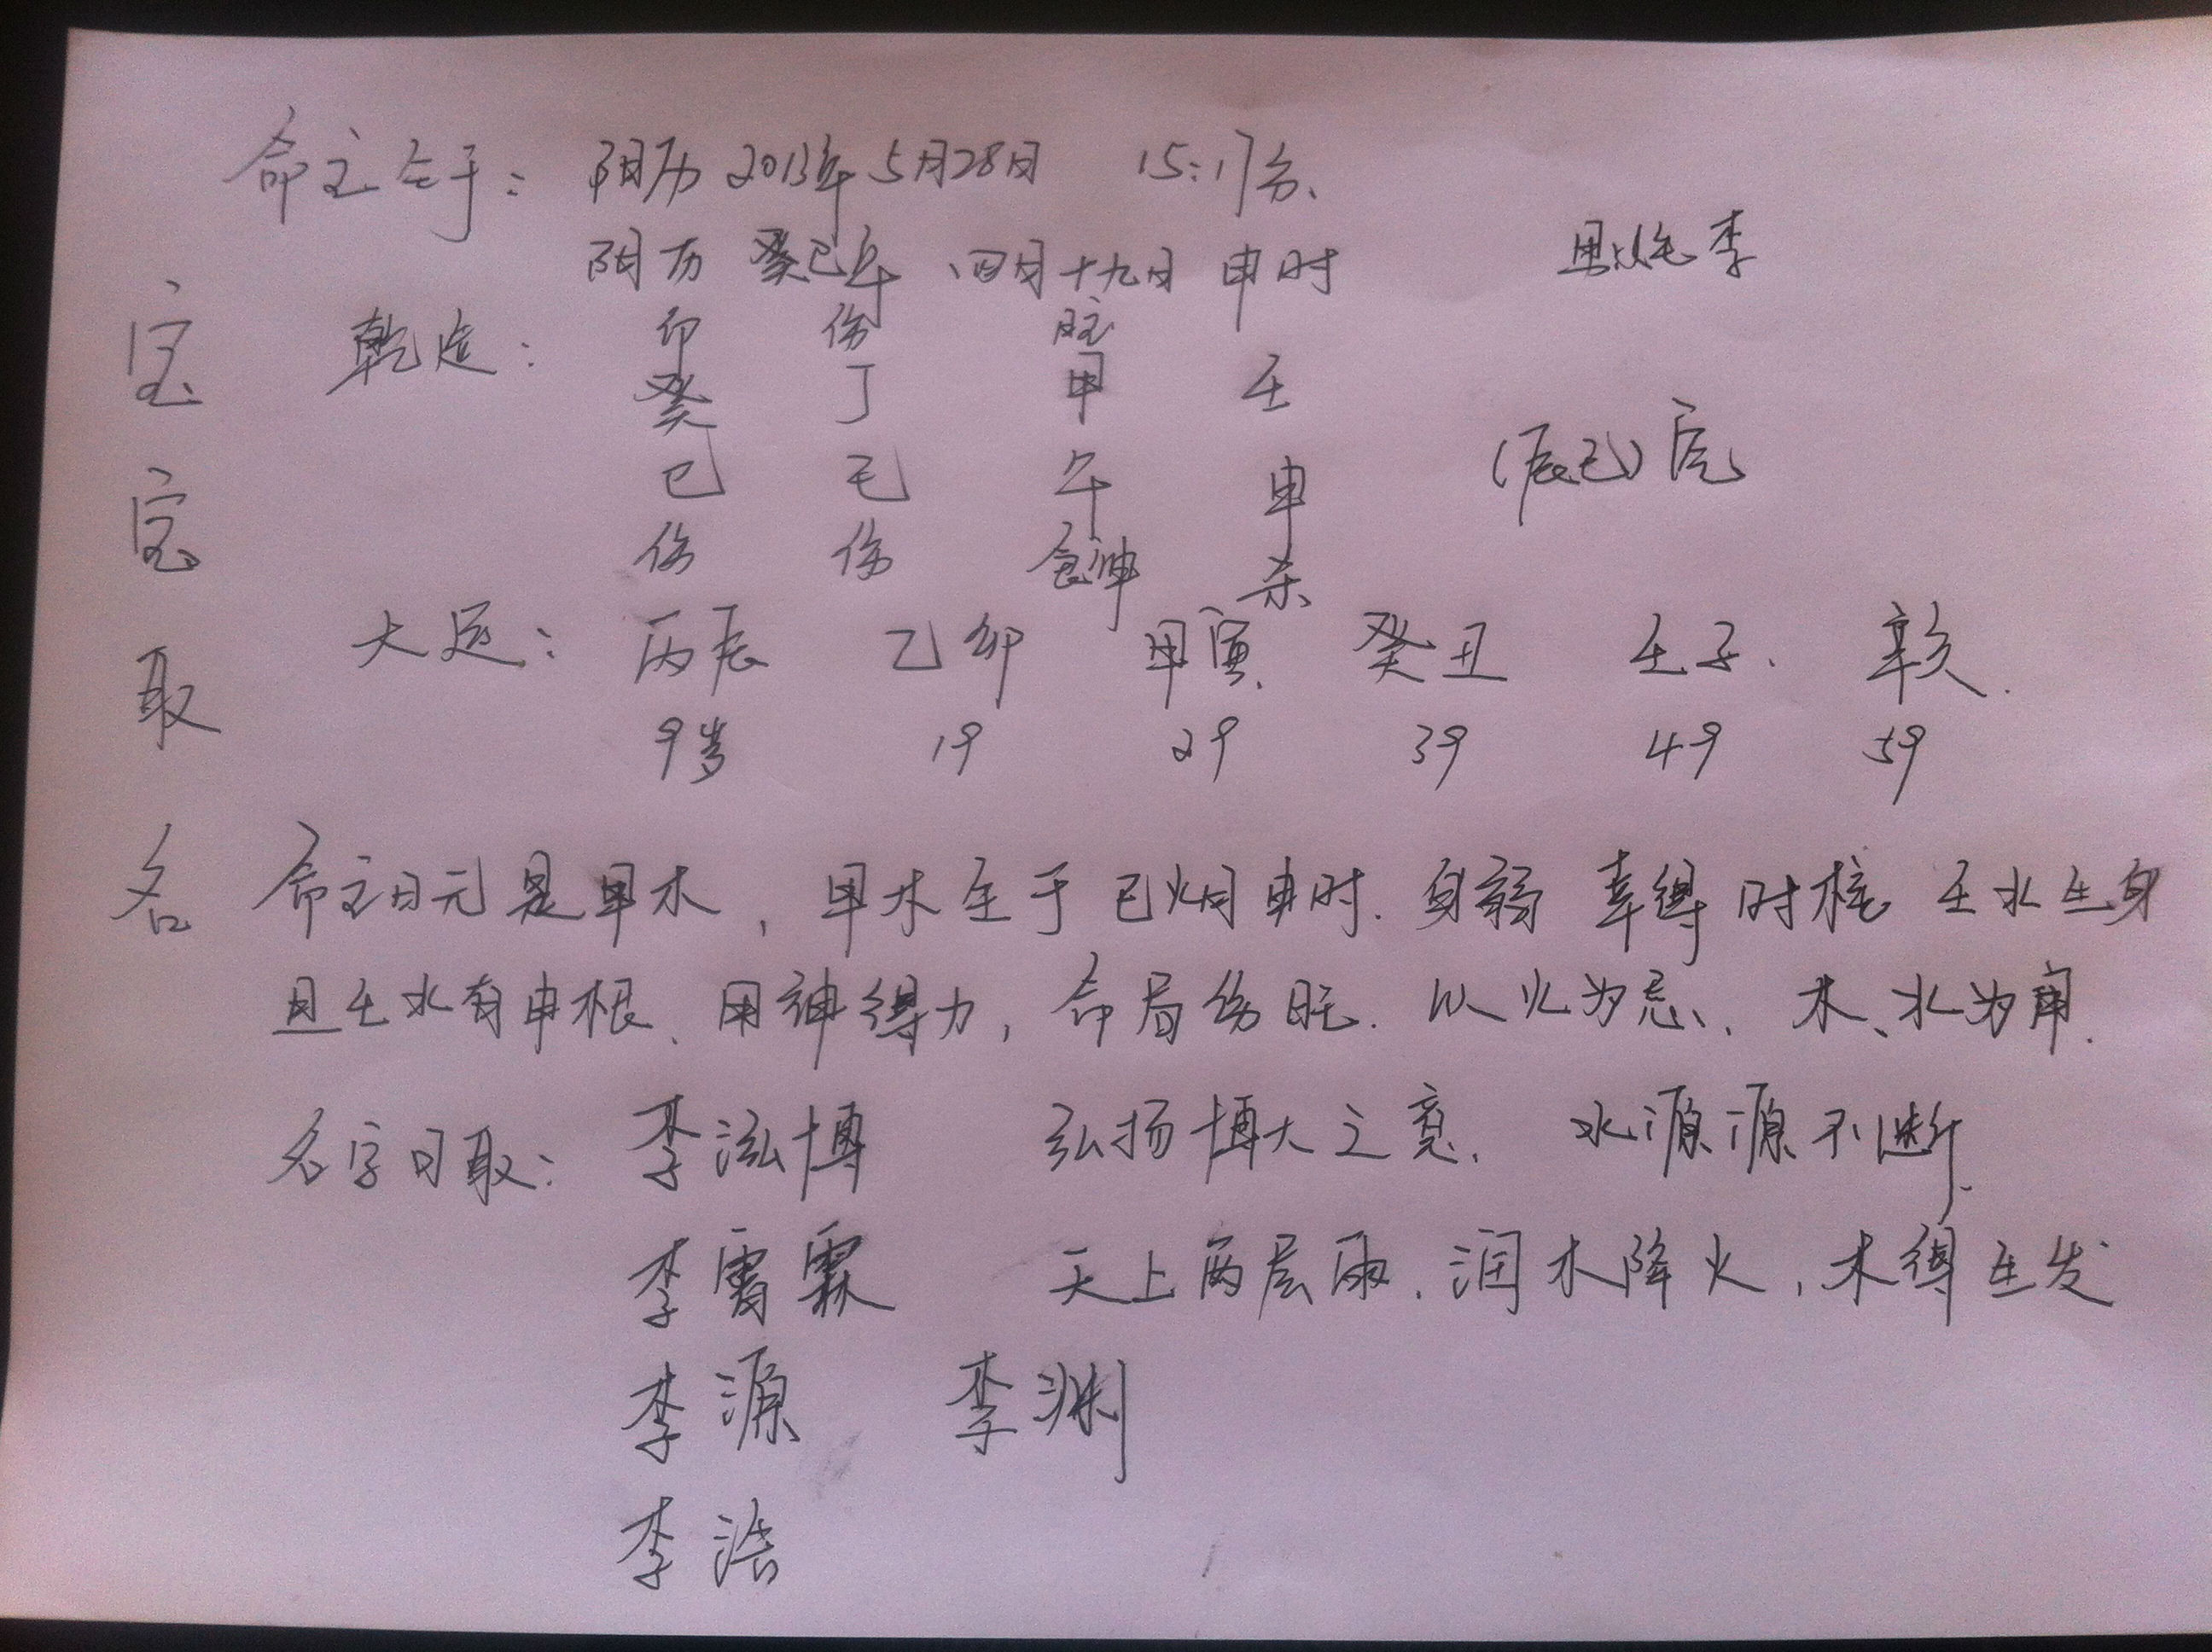 宝宝取名
命主生于： 阳历 2013年 5月28日 15:17分、
阴历 癸巳年 四月十九日 申时 男姓李
印 伤 旺
乾造： 癸 丁 甲 壬
巳 巳 午 申 (辰巳)空
伤 伤 食神 杀
大运： 丙辰 乙卯 甲寅、 癸丑 壬子、 辛亥.
9岁 19 29 39 49 59
命主日元是甲木，甲木生于巳火月申时.身弱 幸得 时柱 壬水生身
且壬水有申根、用神得力，命局伤旺.以火为忌、木、水为用.
名字可取： 李泓博 弘扬博大之意. 水源源不断.
李霄霖 天上两层雨.润木降火，木得生发
李源 李渊
李浩